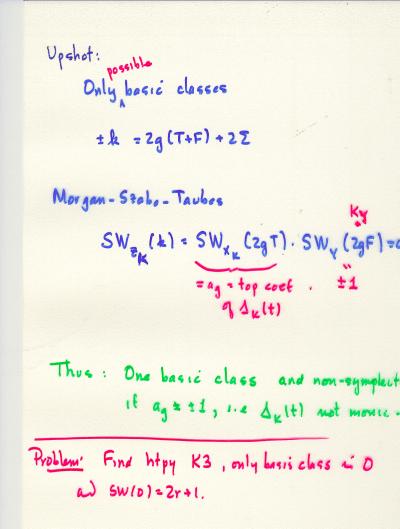 Upshot:
possible
Only ‸ basic classes
± k = 2g(T+F) + 2Σ
Morgan-Szabo-Taubes
K_Y
SW_{Z_K}(k) = SW_{X_K}(2gT) · SW_Y(2gF) =
= a_g = top coef. ±1
of Δ_K(t)
Thus: One basic class and non-symplect
if a_g ≠ ±1, i.e Δ_K(t) not monic
Problem: Find htpy K3, only basis class is 0
and SW(0) = 2r+1.